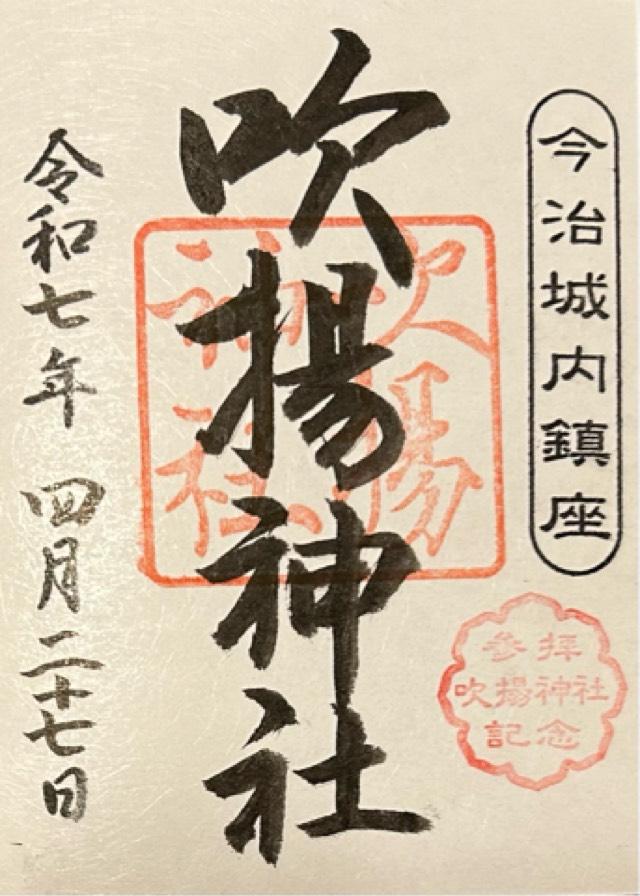 今治城内鎮座
吹揚神社
吹揚
神社
参拝
吹揚神社
記念
令和七年 四月二十七日